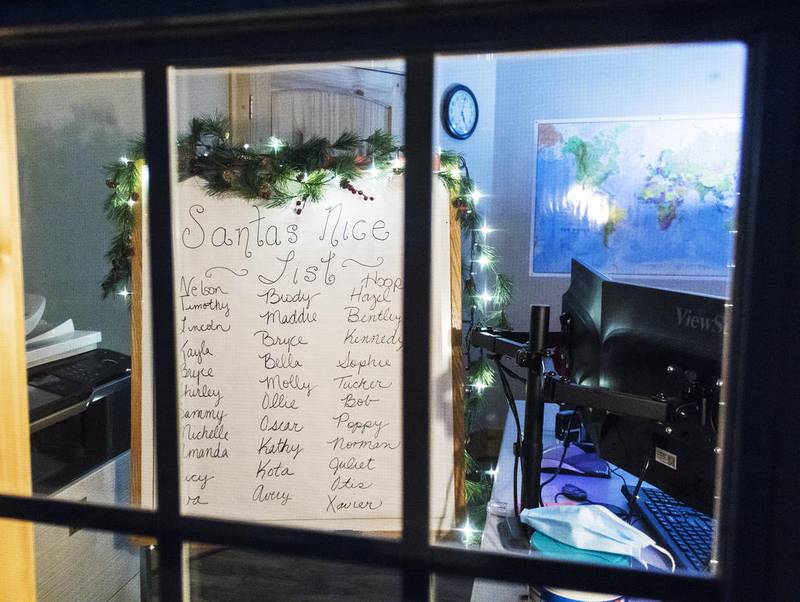 Santas Nice
List
Nelson
Timothy
Lincoln
Kayla
Bryce
Shirley
Sammy
Michelle
Amanda
Brody
Maddie
Bryce
Bella
Molly
Ollie
Oscar
Kathy
Kota
Avery
Hoop
Hazel
Bentley
Kennedy
Sophie
Tucker
Bob
Poppy
Norman
Juliet
Otis
Xavier
ViewS